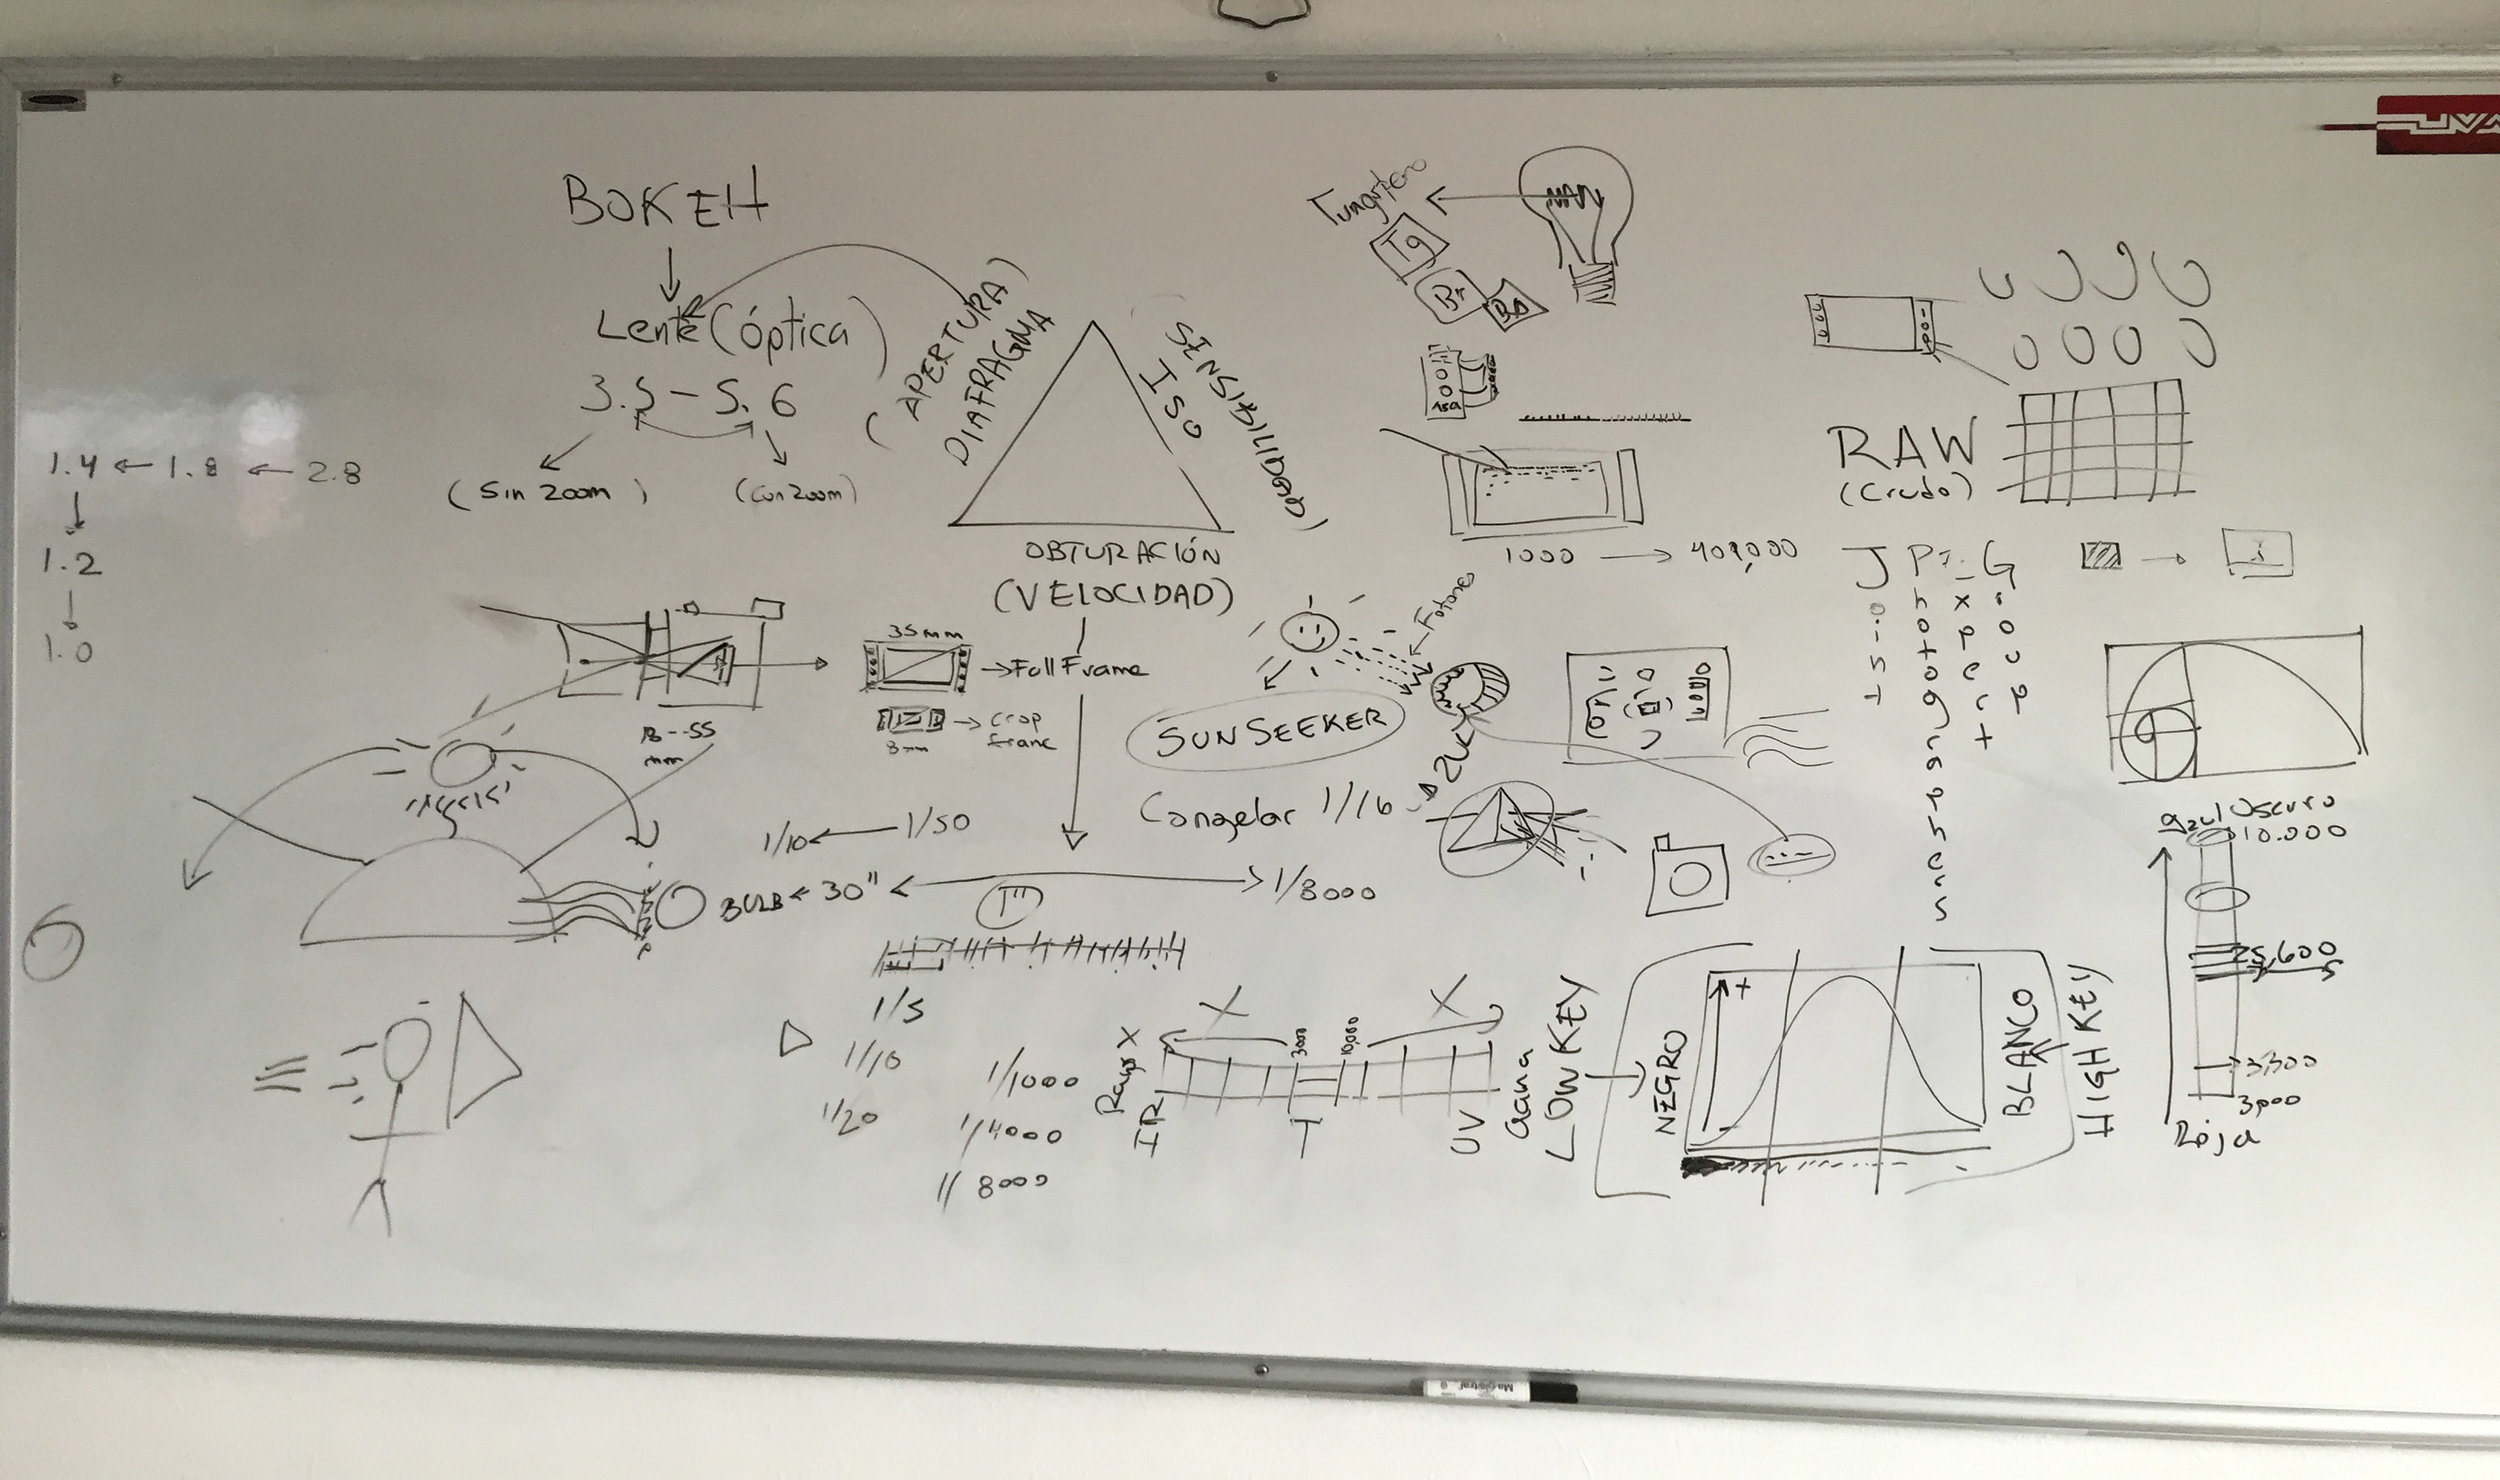 BOKEH
Lente (óptica)
3.5 - 5.6
(Sin zoom)
(con zoom)
1.4 ← 1.8 ← 2.8
1.2
1.0
(APERTURA)
DIAFRAGMA
ISO
OBTURACIÓN
(VELOCIDAD)
Tungsteno
Tg
Br
100
ASA
1000 →
RAW
(Crudo)
JPEG
Fotones
35mm
→ Full Frame
→ Crop
8mm
mm
SUNSEEKER
Congelar 1/16
1/10 ← 1/50
BULB ← 30" ← → 1/8000
1/5
1/10
1/20
1/1000
1/4000
1/8000
Rayos X
IR
3000
10,000
T
UV
Gama
X
X
LOW KEY
NEGRO
+
-
BLANCO
HIGH KEY
azul Oscuro
10.000
25,600
3,300
3,000
Roja